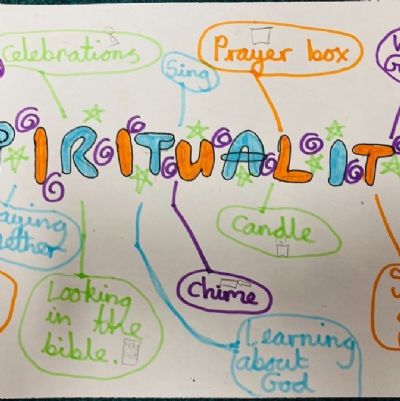 Celebrations
Sing
Prayer box
PIRITUALIT
aying
ether
Looking
in the
bible.
Chime
Candle
Learning
about
God